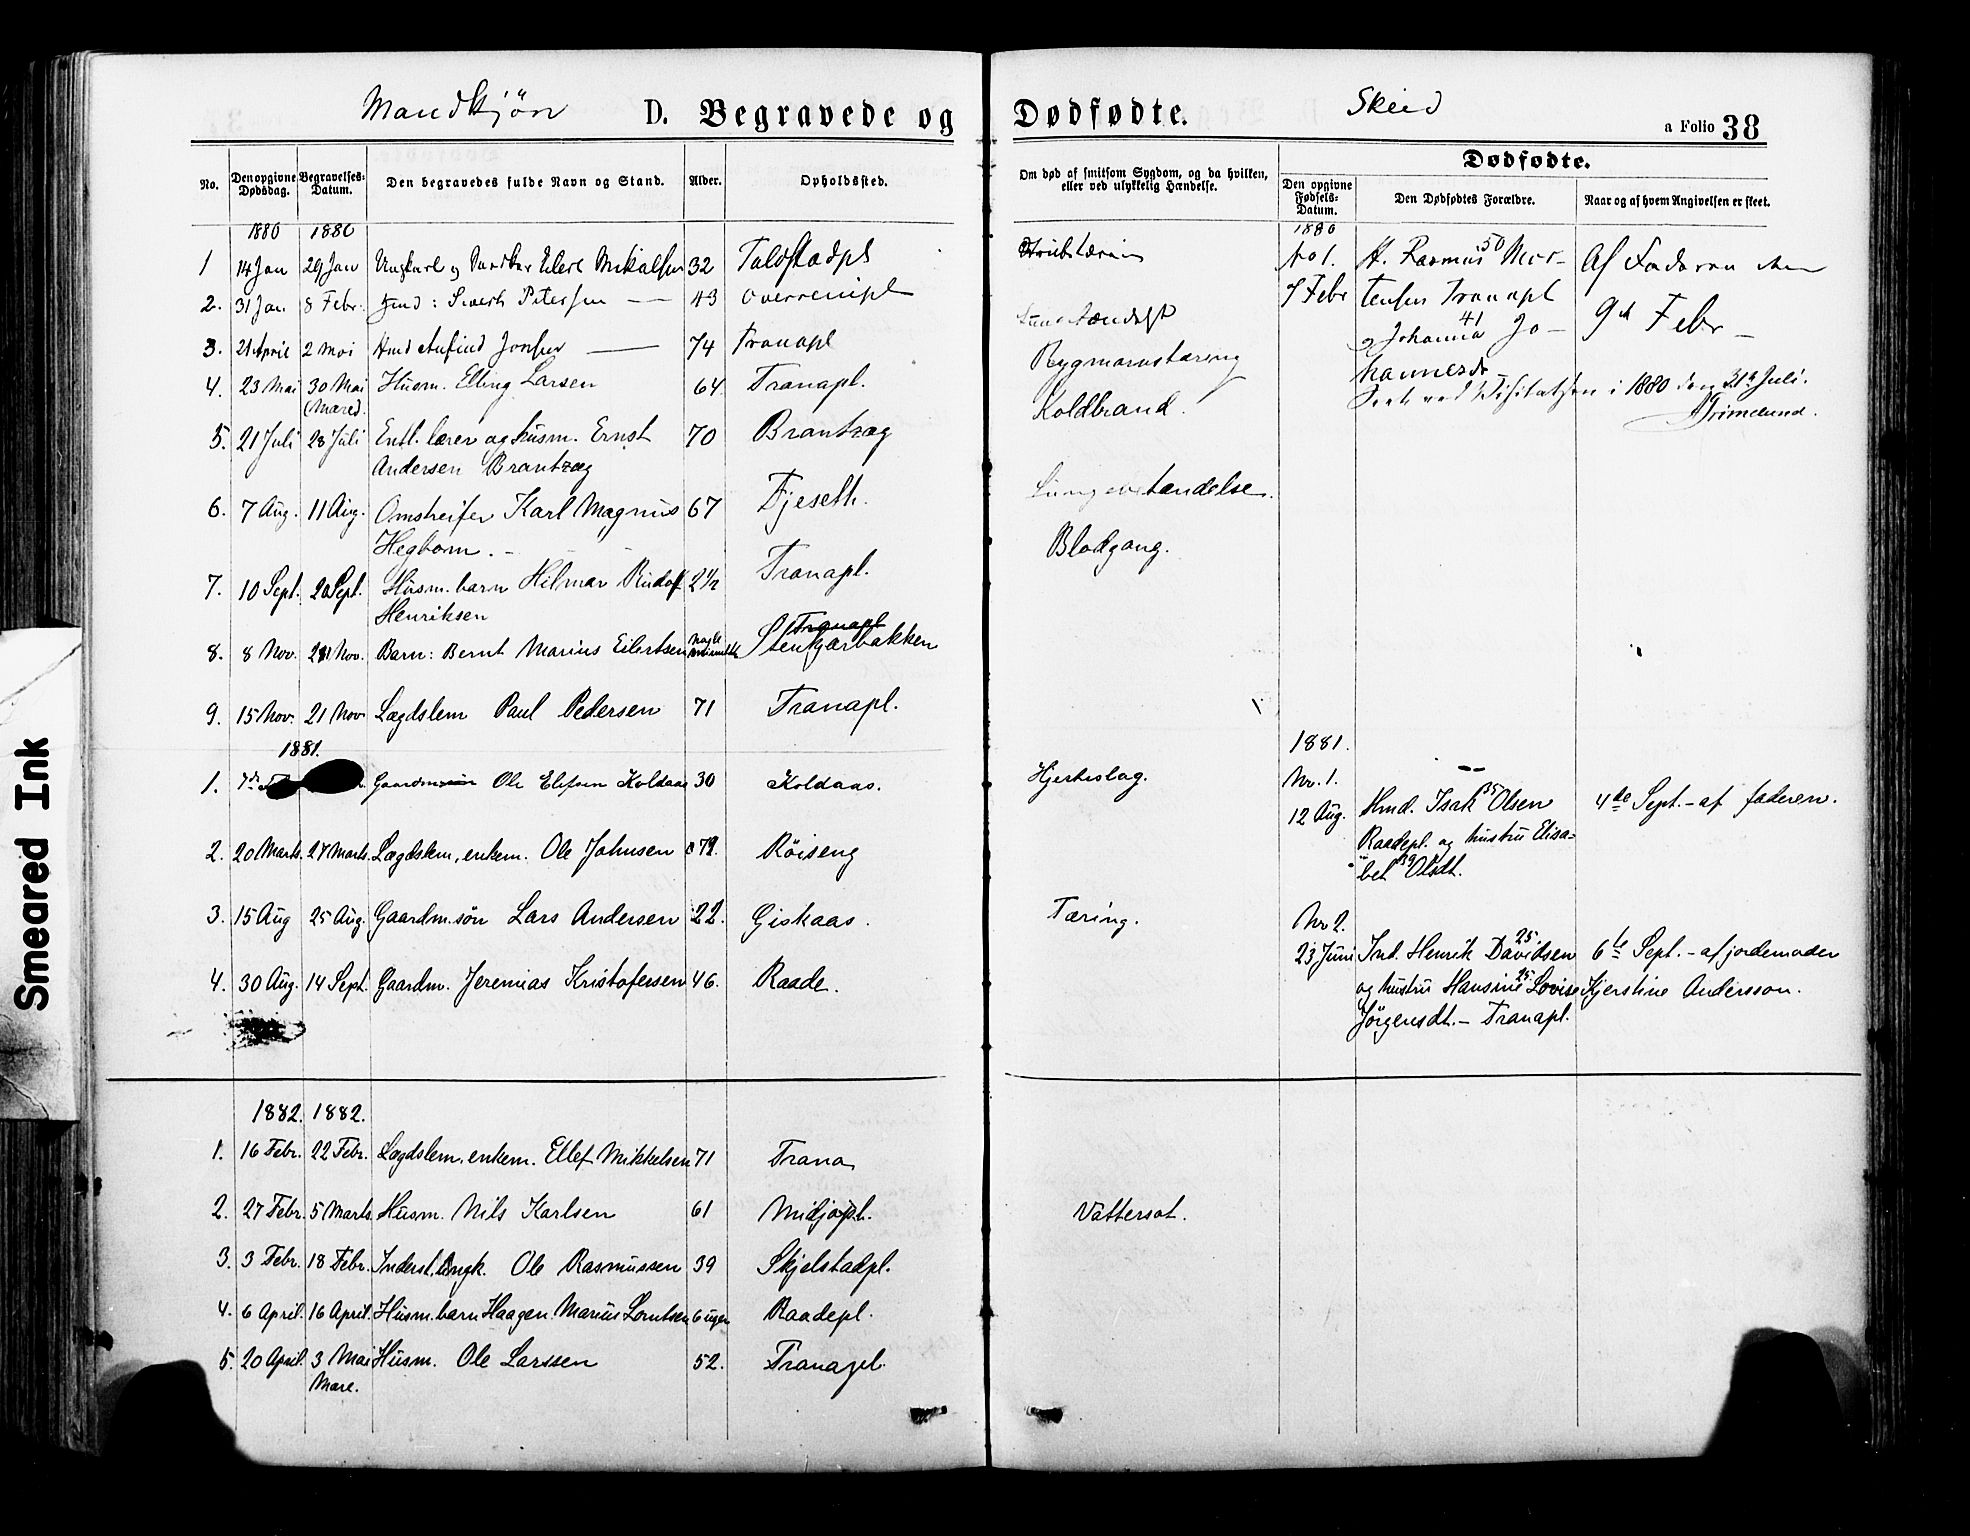 Mandkjøn D. Begravede og Dødfødte. Skeid a Folio 38
No. Den opgivne Dødsdag. Begravelses-Datum. Den begravedes fulde Navn og Stand. Alder. Opholdssted.
Om død af smitsom Sygdom, og da hvilken, eller ved ulykkelig Hændelse.
Dødfødte.
Den opgivne Fødsels-Datum. Den Dødfødtes Forældre. Naar og af hvem Angivelsen er skeet.
1880 1880
1 14 Jan 29 Jan Ungkarl Eilert Mikalsen 32
2. 31 Jan. 8 Febr. Sivert Petersen — 43
3. 21 April 2 Mai Jonsen — 74 Tranapl
4. 23 Mai 30 Mai Husm. Elling Larsen 64 Tranapl.
(Mære).
5. 21 Juli 28 Juli Entl. lærer og husm. Ernst 70 Brantzæg
Andersen Brantzæg
6. 7 Aug. 11 Aug. Omstreifer Karl Magnus 67 Fjeseth.
Hegbom. -
7. 10 Sept. 20 Sept. Husm. barn Hilmar Rudolf 2 1/2 Tranapl.
Henriksen
Tranapl
8. 8 Nov. 21 Nov. Barn: Bernt Marius Eilertsen nogle minutter Stenkjærbakken
9. 15 Nov. 21 Nov Lægdslem Paul Pedersen 71 Tranapl.
1881.
1. 7de Gaardm Ole Elefsen Koldaas 30 Koldaas.
2. 20 Marts. 27 Marts. Lægdslem, enkem. Ole Johnsen 79. Röiseng
3. 15 Aug 25 Aug. Gaardm. sön Lars Andersen 22. Giskaas.
4. 30 Aug. 14 Sept. Gaardm. Jeremias Kristofersen 46. Raade.
1882. 1882.
1. 16 Febr. 22 Febr. Lægdslem, enkem. Ellef Mikkelsen 71 Trana
2. 27 Febr. 5 Marts. Husm. Nils Karlsen 61 Midjopl.
3. 3 Febr. 18 Febr. Inderst. Ungk. Ole Rasmussen 39 Skjelstadpl.
4. 6 April. 16 April. Husm. barn Haagen Marius Lorntsen 6 uger Raadepl.
5. 20 April. 3 Mai Husm. Ole Larssen 52. Tranapl.
Mære.
Rygmarvstæring
Koldbrand.
Lungebetændelse.
Blodgang.
Hjerteslag.
Tæring.
Vattersot.
1880
No 1. Rasmus 50 Mor- Af Faderen den
7 Febr tensen Tranapl 9de Febr —
og Johanna 41 Jo-
hannesd
Seet ved Visitatsen i 1880 den 31te Juli.
Grimelund.
1881.
Nr. 1.
12 Aug. Hmd. Isak 35 Olsen 4de Sept. - af faderen.
Raadepl. og hustru Elisa=
bet 39 Olsdt.
Nr 2.
23 Juni Ind. Henrik Davidsen 25 6te Sept. - af jordemoder
og hustru Hansine 25 Lovise Kjerstine Andersson.
Jörgensdt. - Tranapl.
Smeared Ink